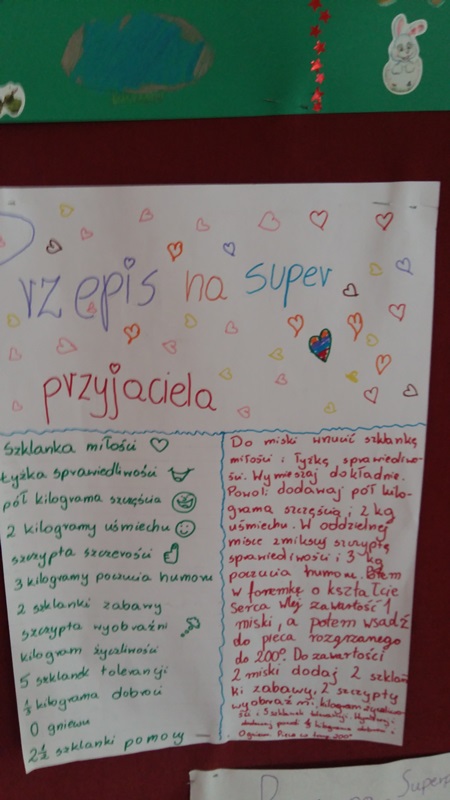 rzepis na super
przyjaciela
Szklanka miłości
łyżka sprawiedliwości
pół kilograma szczęścia
2 kilogramy uśmiechu
szczypta szczerości
3 kilogramy poczucia humoru
2 szklanki zabawy
szczypta wyobraźni
kilogram życzliwości
5 szklanek tolerancji
½ kilograma dobroci
0 gniewu
2½ szklanki pomocy
Do miski wrzucić szklankę
miłości i łyżkę sprawiedliwo-
ści. Wymieszaj dokładnie.
Powoli dodawaj pół kilo-
grama szczęścia i 2 kg
uśmiechu. W oddzielnej
misce zmiksuj szczyptę
sprawiedliwości i 3 kg
poczucia humoru.
w foremkę o kształcie
Serca wlej zawartość 1
miski, a potem wsadź
do pieca rozgrzanego
do 200°. Do zawartości
2 miski dodaj 2 szklan
ki zabawy, 2 szczypty
wyobraźni, kilogram życzliwo
ści i 5 szklanek tolerancji.
½ kilograma dobroci i
0 gniewu. 200°
Super